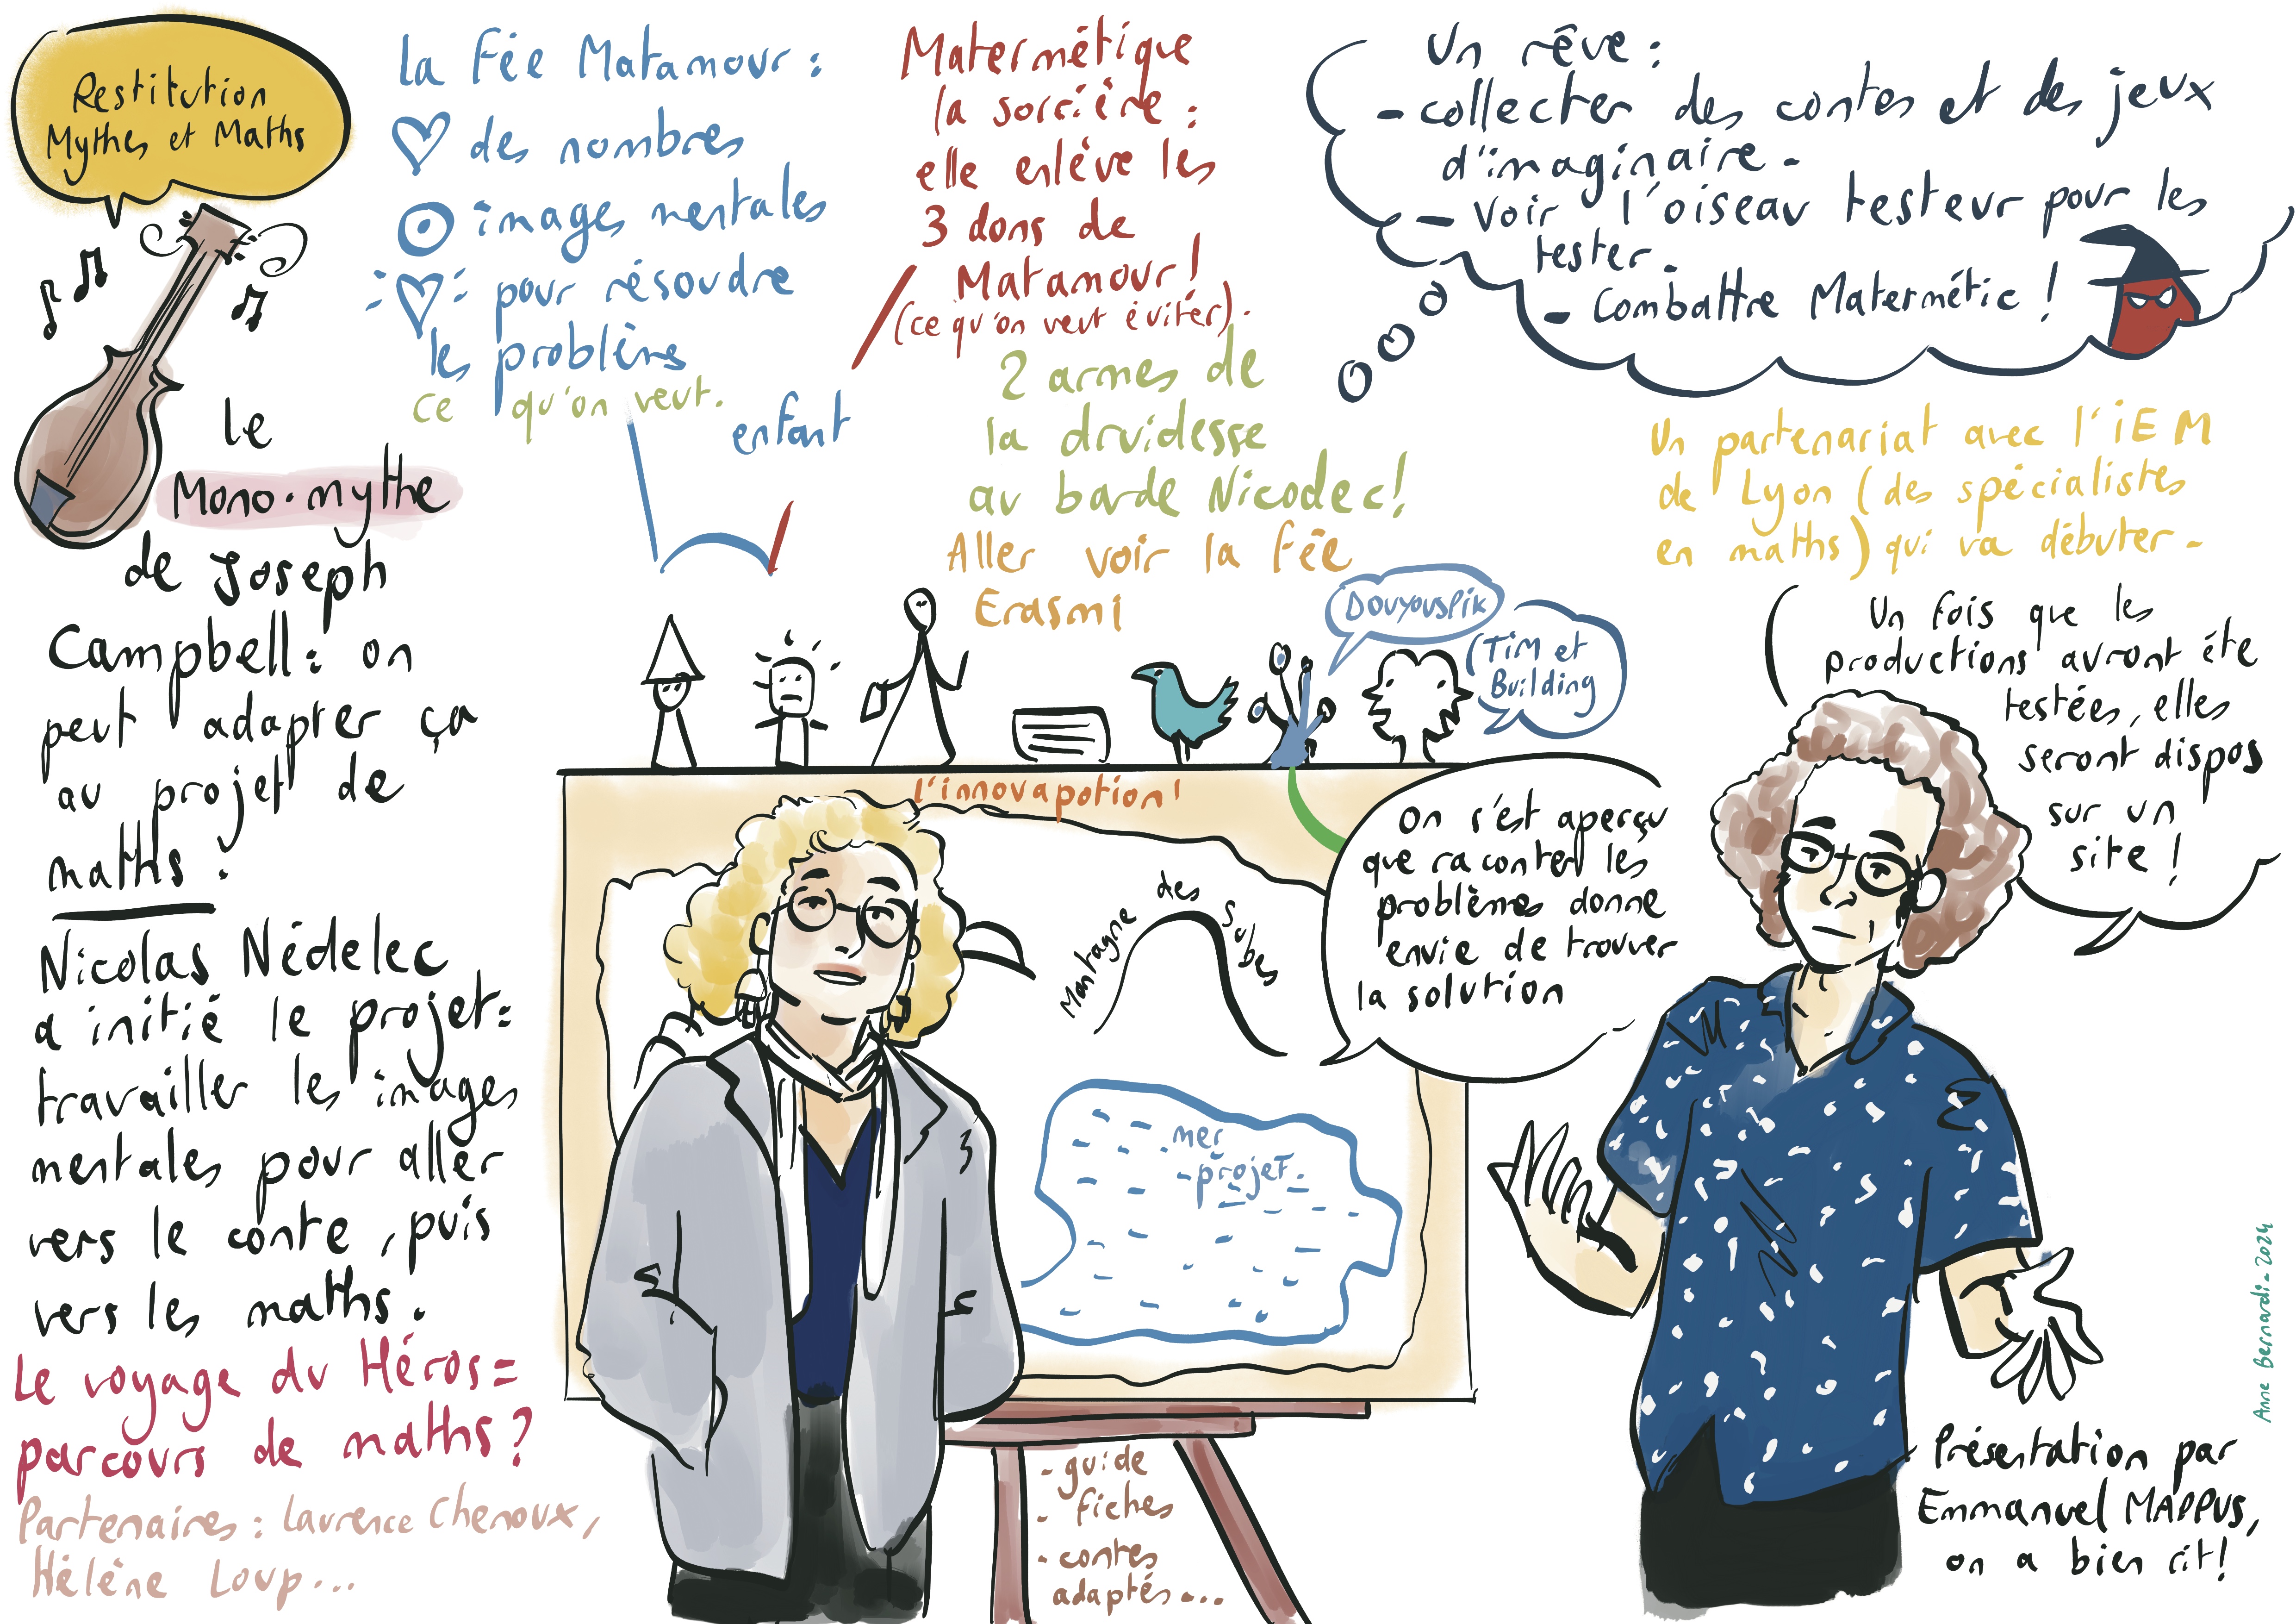 Restitution
Mythes et Maths
le
Mono-mythe
de Joseph
Campbell : on
peut adapter ça
au projet de
maths.
Nicolas Nédelec
a initié le projet :
travailler les images
mentales pour aller
vers le conte, puis
vers les maths.
Le voyage du Héros =
parcours de maths ?
Partenaires : Laurence Chenoux,
Hélène Loup...
la Fée Matamour :
des nombres
images mentales
pour résoudre
les problèms
ce qu'on veut.
enfant
Matermétique
la sorcière :
elle enlève les
3 dons de
Matamour !
(ce qu'on veut éviter).
2 armes de
la druidesse
au barde Nicodec !
Aller voir la Fée
Erasmi
Un rêve :
- collecter des contes et des jeux
d'imaginaire -
- voir l'oiseau testeur pour les
tester.
- Combattre Matermétic !
Un partenariat avec l'iEM
de Lyon (des spécialistes
en maths) qui va débuter -
Douyouspik
TiM et
Building
l'innovapotion !
Montagne des Subes
mer
projet.
On s'est aperçu
que raconter les
problèmes donne
envie de trouver
la solution
Un fois que les
productions auront éte
testées, elles
seront dispos
sur un
site !
- guide
- fiches
- contes
adaptés...
Présentation par
Emmanuel MAPPUS,
on a bien rit !
Anne Bernardi - 2024